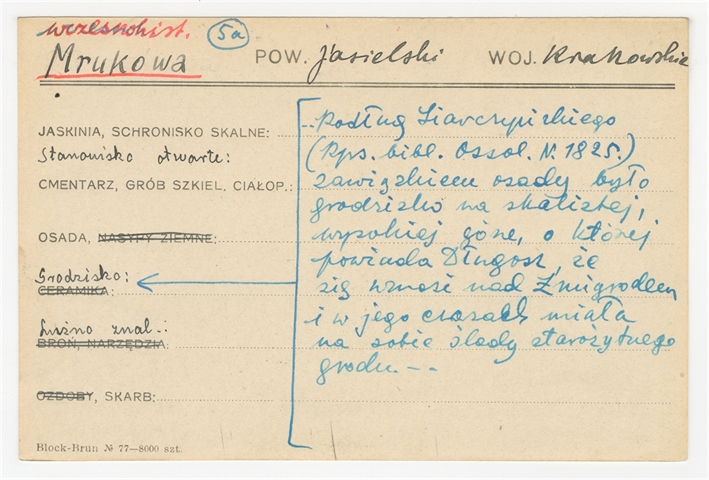 wczesnohist. 5a
Mrukowa POW. Jasielski WOJ. Krakowskie
JASKINIA, SCHRONISKO SKALNE:
Stanowisko otwarte:
CMENTARZ, GRÓB SZKIEL, CIAŁOP.:
OSADA, NASYPY ZIEMNE:
Grodzisko:
CERAMIKA:
Luźno znal.:
BROŃ, NARZĘDZIA:
OZDOBY, SKARB:
Podług Siarczyńskiego
(Rps. bibl. Ossol. N. 1825.)
zawiązkiem osady było
grodzisko na skalistej,
wysokiej górze, o której
powiada Długosz, że
się wznosi nad Żmigrodem
i w jego czasach miała
na sobie ślady starożytnego
grodu.--
Block-Brun № 77—8000 szt.